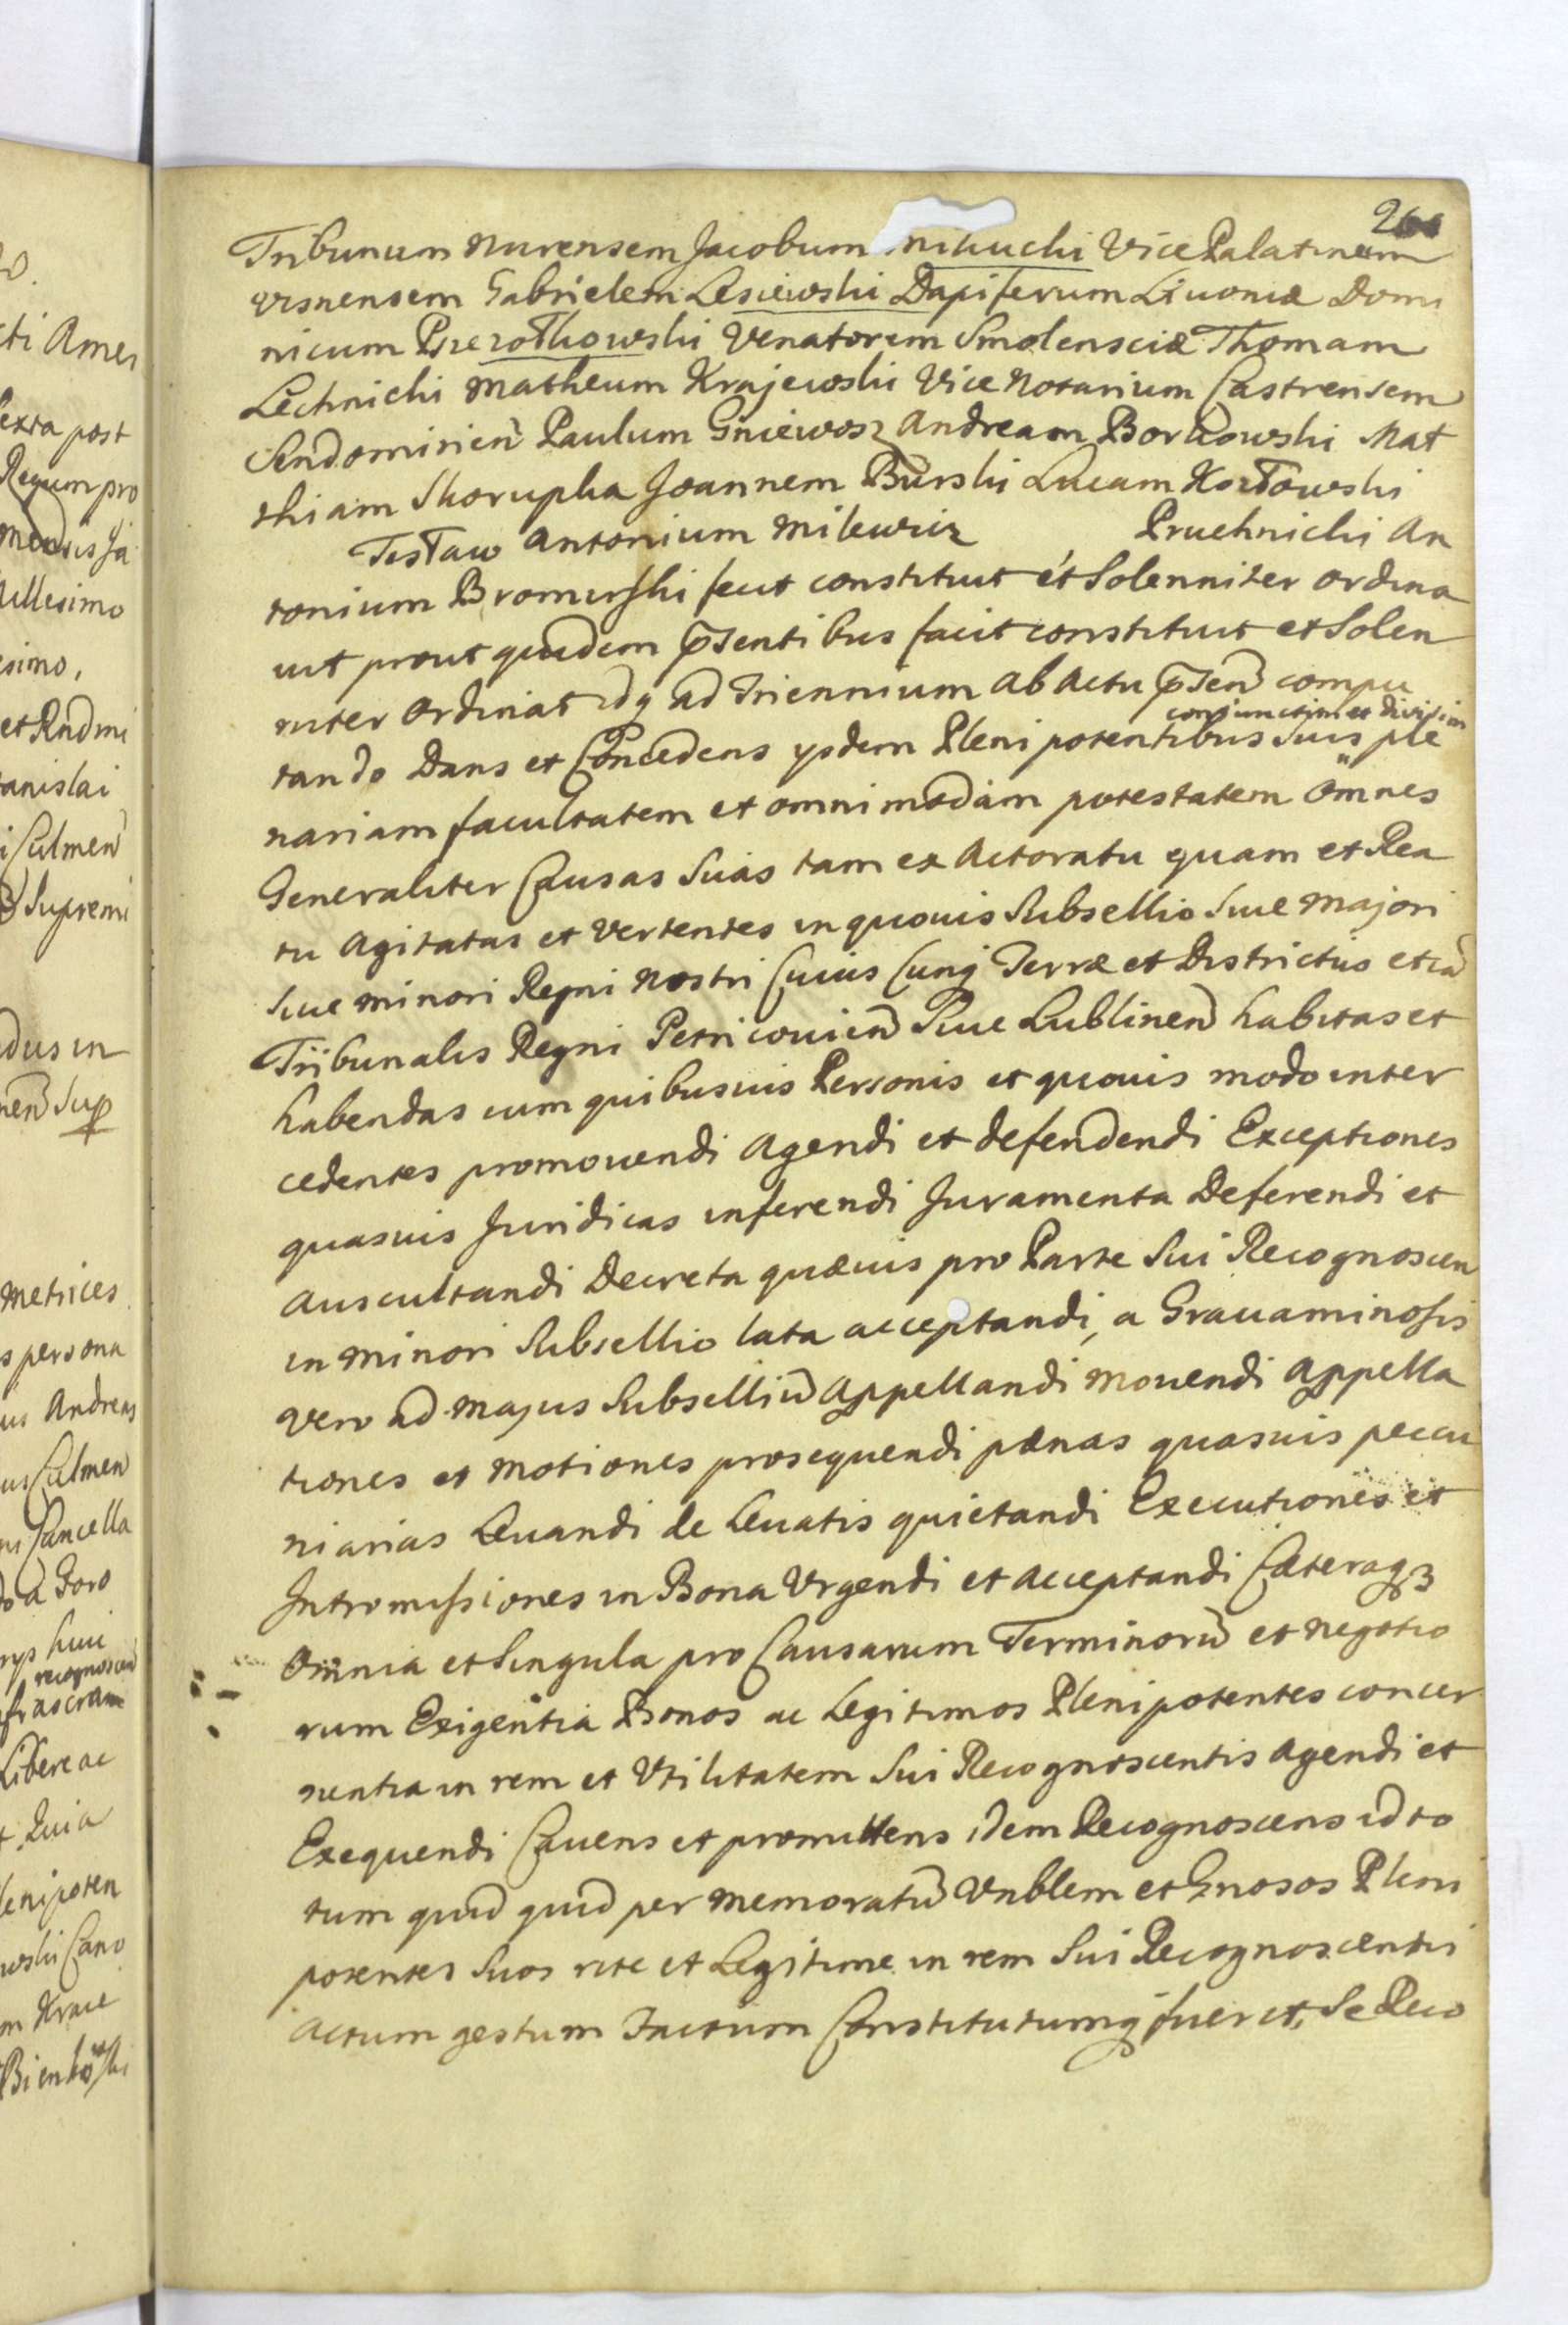 Tribunum Nurensem Jacobum Vice Palatinum
Visnensem Gabrielem Lesiewski Dapiferum Livoniæ Domi
nicum Przezothowski Venatorem Smolensciæ Thomam
Lechnicki Matheum Krajewski Vice Notarium Castrensem
Sendomirien Paulum Gniewosz Andream Borkowski Mat
thiam Skorupka Joannem Burski Lucam Kozłowski
Testaw Antonium Milewicz Pruchnicki An
tonium Bromirski fecit constituit et Solenniter ordina
uit prout quidem pñsentibus facit constituit et Solen
niter Ordinat idq ad Triennium ab Actu pñsen compu
conjunctim et divisim
tando Dans et Concedens ysdem Plenipotentibus Suis ple
nariam facultatem et omnimodam potestatem Omnes
Generaliter Causas Suas tam ex Actoratu quam et Rea
tu Agitatas et Vertentes in quouis Subsellio Siue Majori
Siue minori Regni Nostri Cuius Cunq Terræ et Districtus etiã
Tribunalis Regni Petricouien Siue Lublinen habitas et
habendas cum quibusuis Personis et quouis modo inter
cedentes promouendi Agendi et defendendi Exceptiones
quasuis Juridicas inferendi Juramenta Deferendi et
Auscultandi Decreta quæuis pro Parte Sui Recognoscen
in minori Subsellio lata acceptandi, a Grauaminosis
Vero ad Majus Subselliũ Appellandi Mouendi Appella
tiones et Motiones prosequendi pænas quasuis pecu
niarias Leuandi de Leuatis quietandi Executiones et
Intromissiones in Bona Vrgendi et Acceptandi Cæteraqз
Omnia et Singula pro Causarum Terminorũ et negotio
rum Exigentia Bonos ac Legitimos Plenipotentes concer
nentia in rem et Vtilitatem Sui Recognoscentis Agendi et
Exequendi Cauens et promittens idem Recognoscens id to
tum quid quid per Memoratũ Vnblem et Gnosos Pleni
potentes Suos rite et Legitime in rem Sui Recognoscentis
Actum gestum Factum Constitutumq fuerit, Se Reco